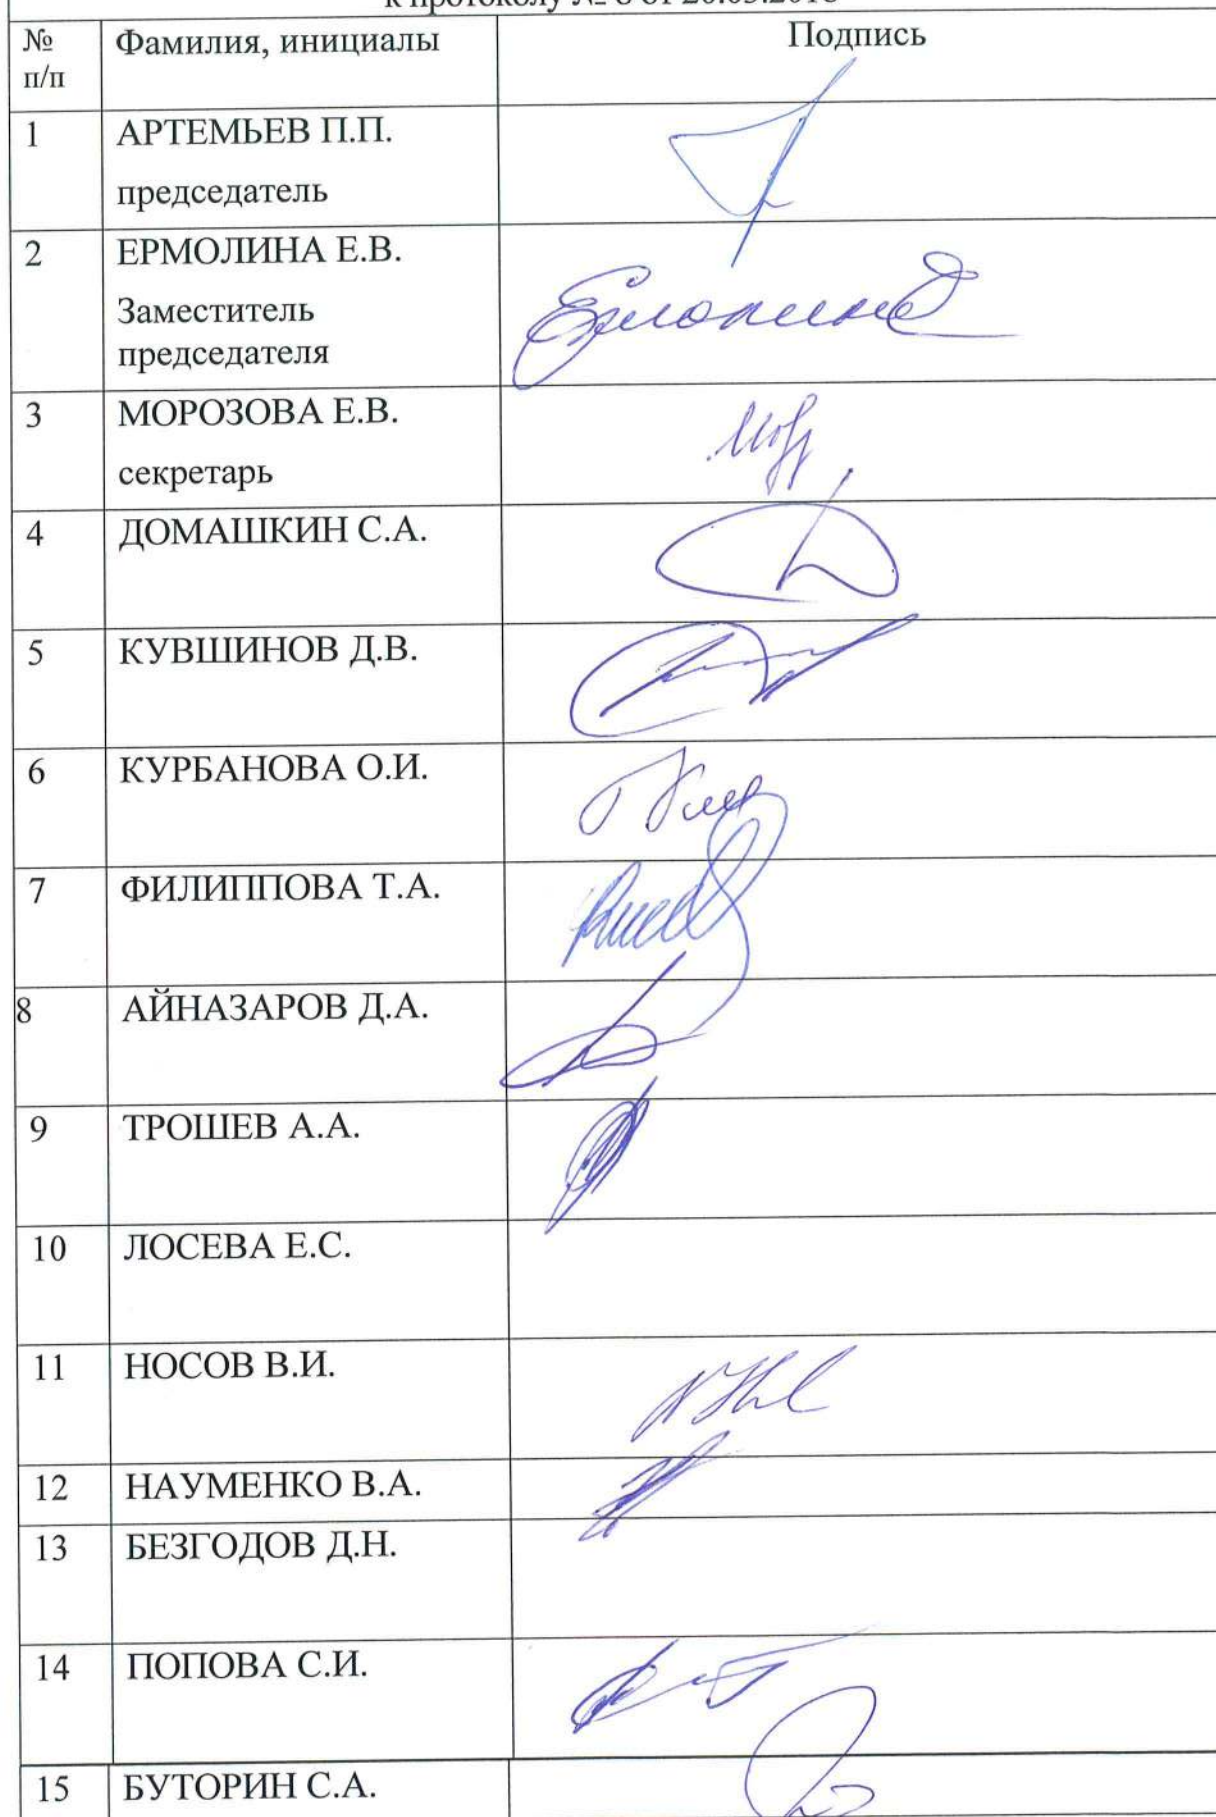 № Фамилия, инициалы Подпись
п/п
1 АРТЕМЬЕВ П.П.
председатель
2 ЕРМОЛИНА Е.В.
Заместитель
председателя
3 МОРОЗОВА Е.В.
секретарь
4 ДОМАШКИН С.А.
5 КУВШИНОВ Д.В.
6 КУРБАНОВА О.И.
7 ФИЛИППОВА Т.А.
8 АЙНАЗАРОВ Д.А.
9 ТРОШЕВ А.А.
10 ЛОСЕВА Е.С.
11 НОСОВ В.И.
12 НАУМЕНКО В.А.
13 БЕЗГОДОВ Д.Н.
14 ПОПОВА С.И.
15 БУТОРИН С.А.